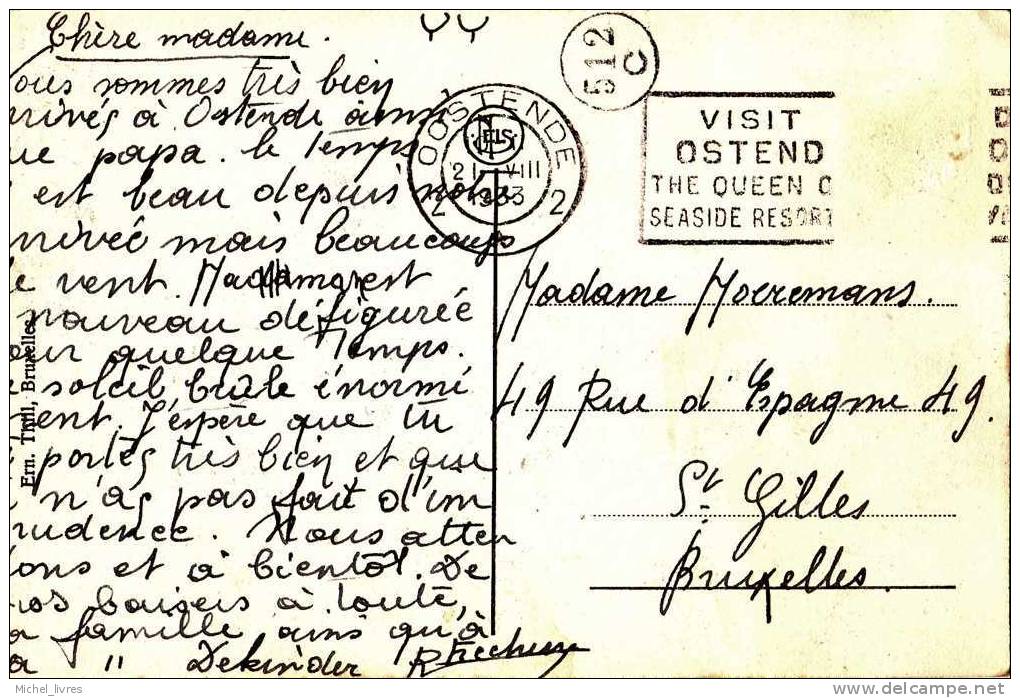 Chère madame.
ous sommes très bien
rrivés à Ostende ainsi
ue papa. le temps
est beau depuis notr
rrivée mais beaucoups
e vent. Madame est
nouveau défigurée
our quelque temps.
e soleil brûle énormé
ent. J'espère que tu
portes très bien et que
n'as pas fait d'im
rudence. Nous atten
ons et à bientôt. De
ros baisers à toute,
a famille ains qu'à
a " Dekinder
Ern. Thill, Bruxelles
OOSTENDE
NELS
21 VIII
1933
2 2
512
C
VISIT
OSTEND
THE QUEEN O
SEASIDE RESORT
Madame Moeremans.
49 Rue d'Espagne 49.
St Gilles
Bruxelles.
Michel_livres
delcampe.net